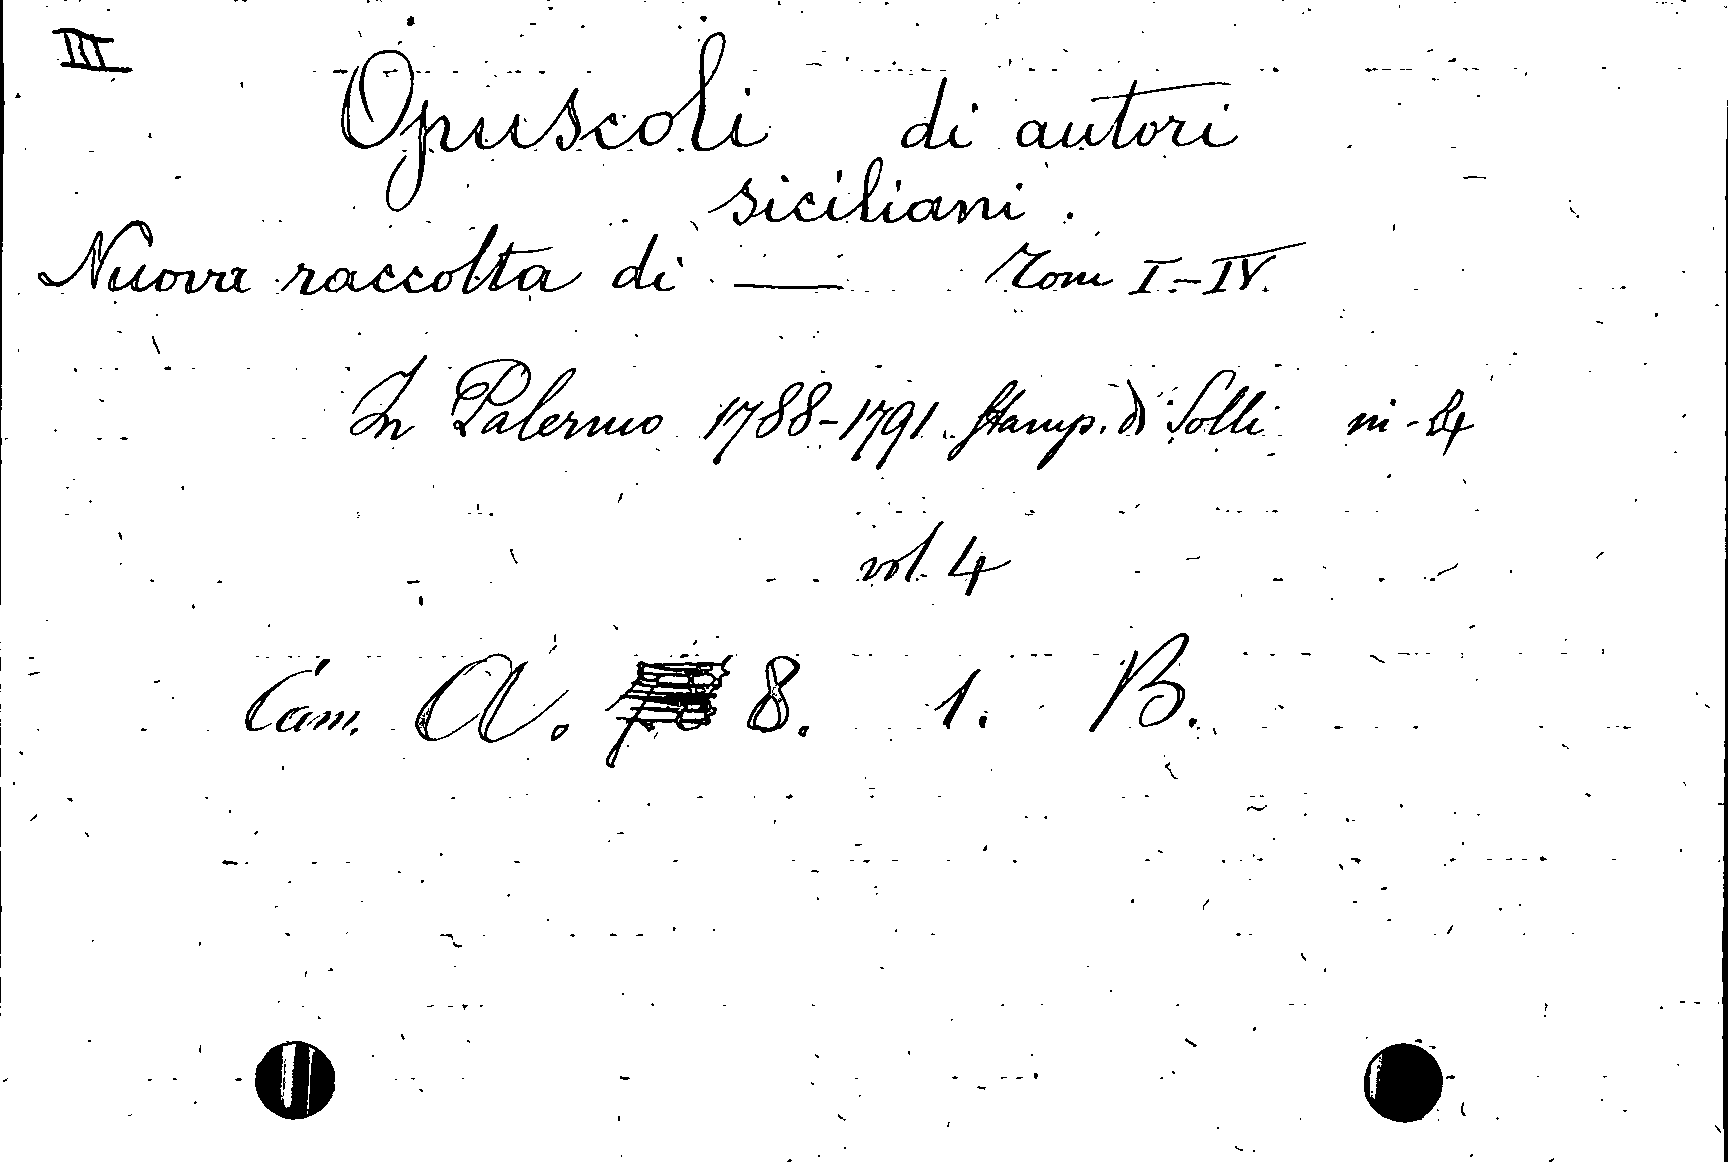 III
Opuscoli di autori
siciliani.
Nuova raccolta di — Tom I-IV.
In Palermo 1788-1791 Stamp. di Solli in-4
vol. 4
Cam. A. 8. 1. B.